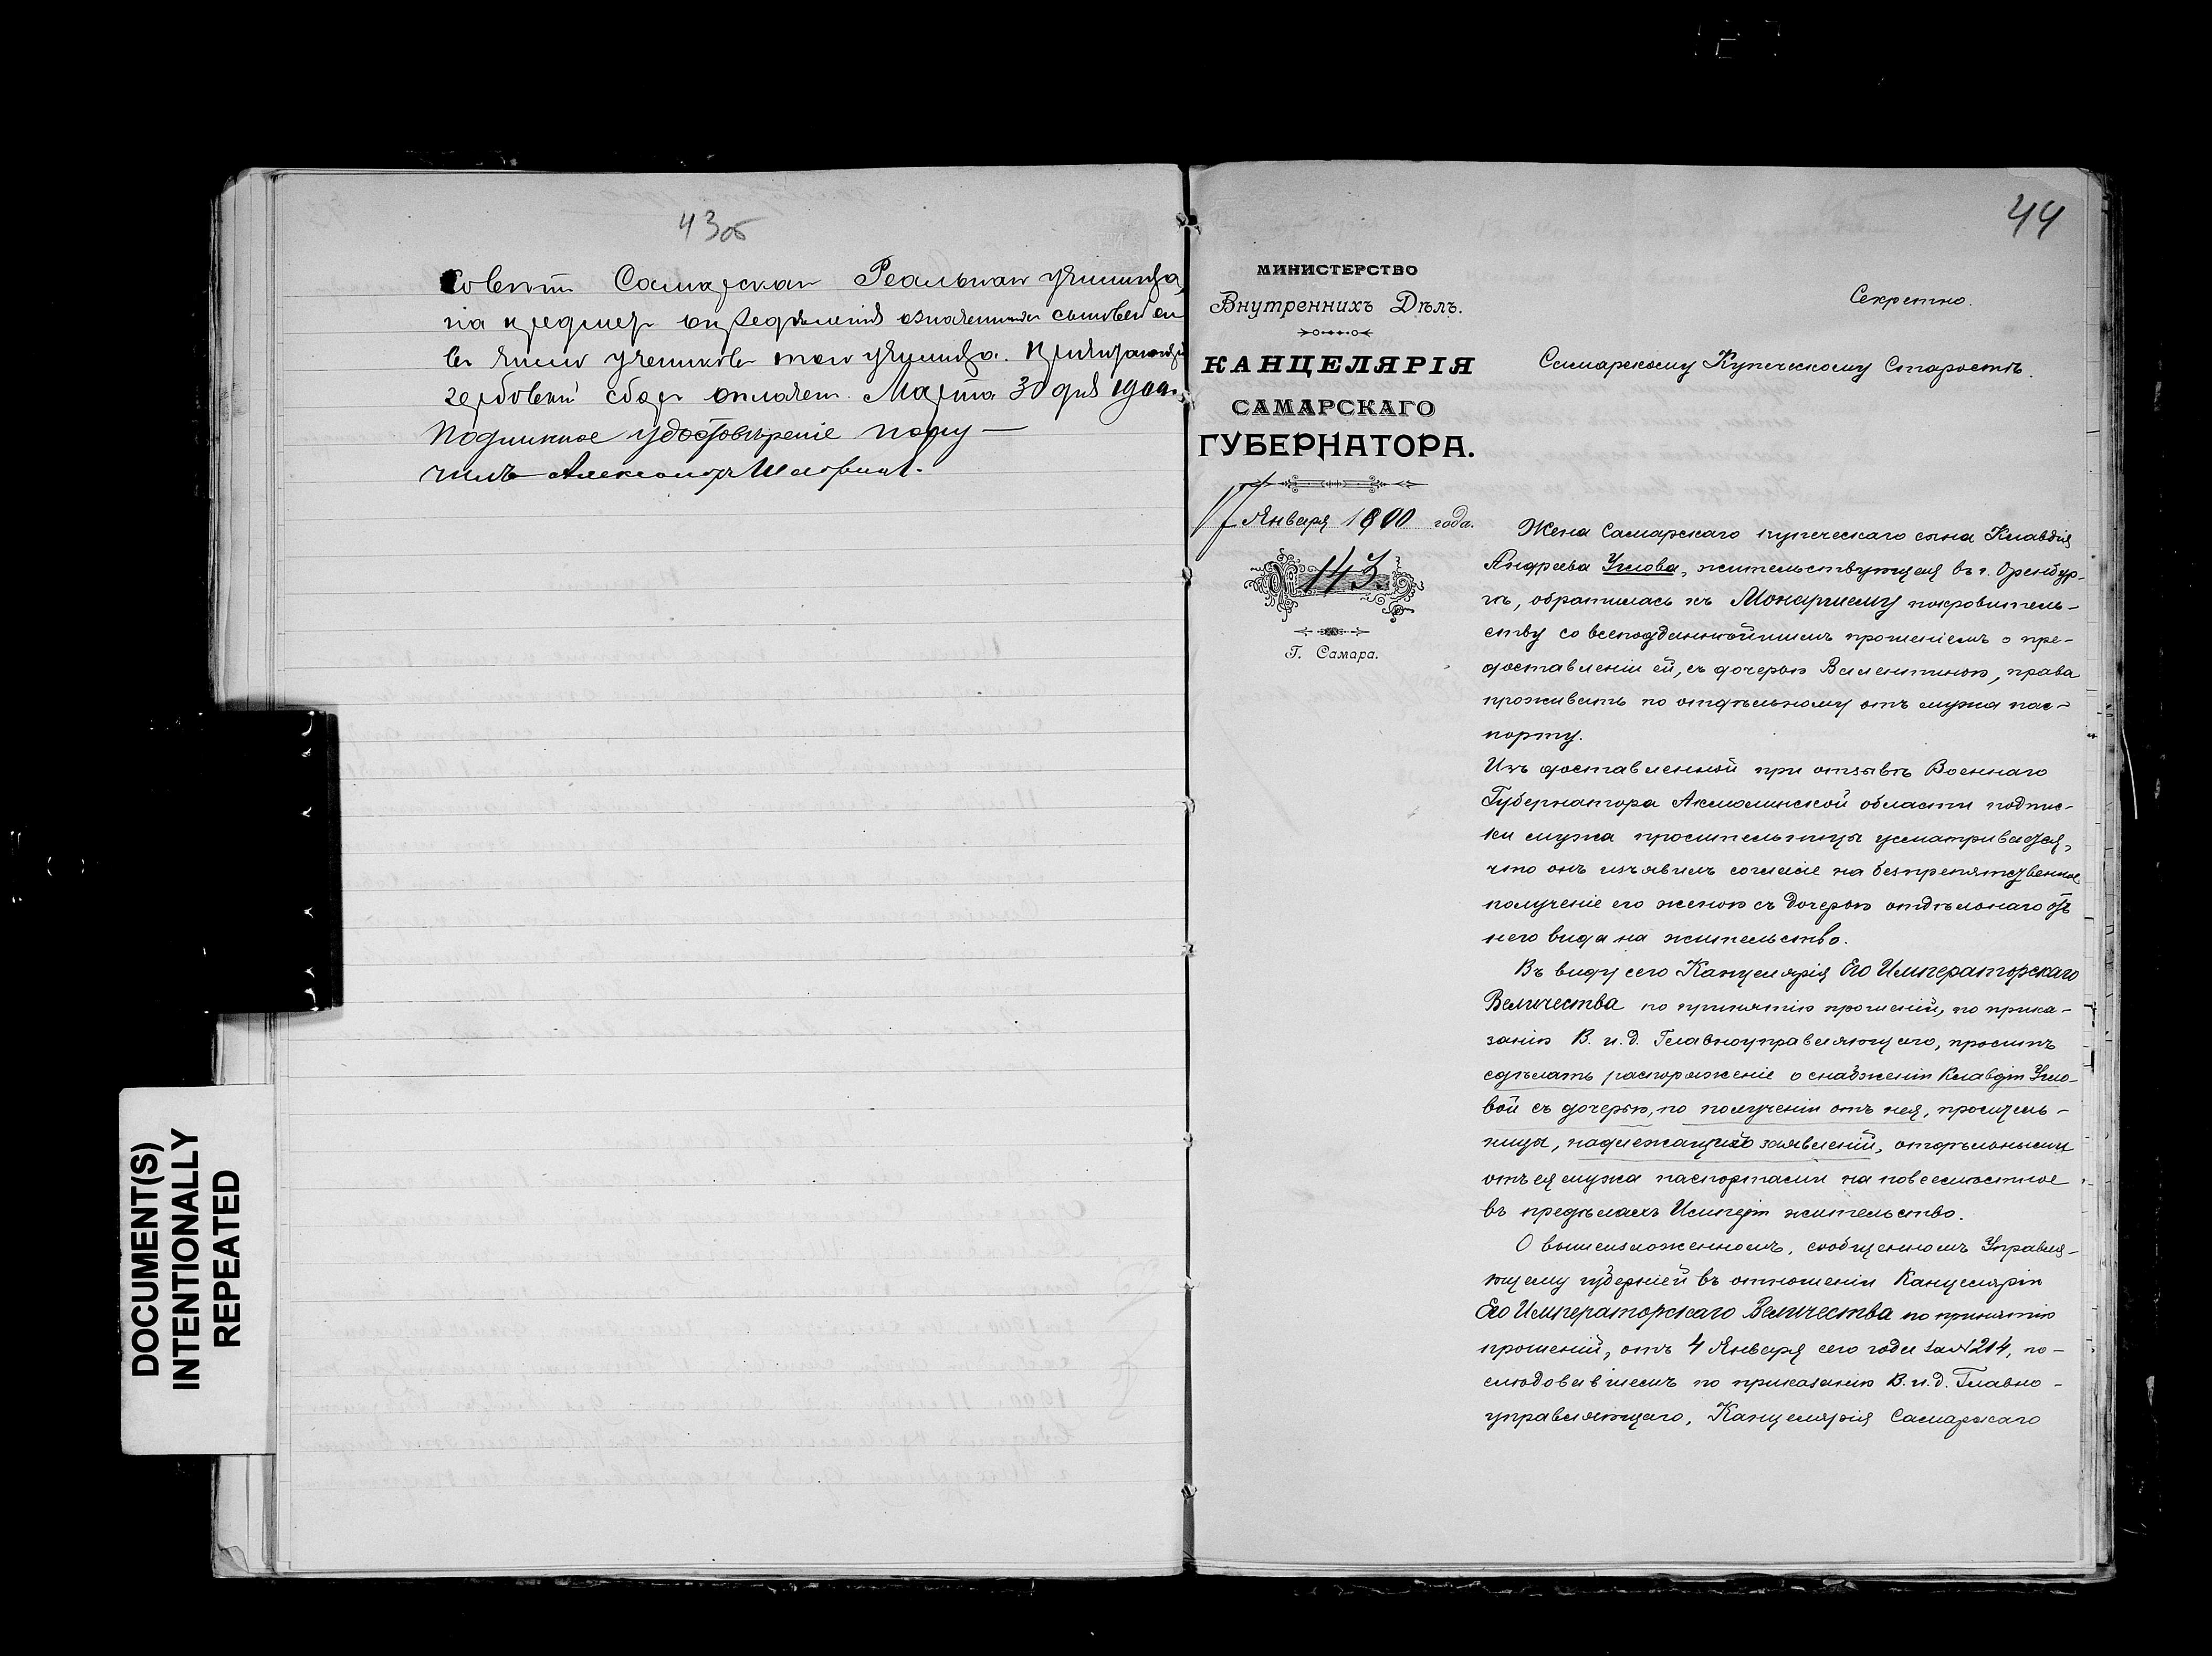 43об
Советъ Самарскаго Реальнаго училища,
на предметъ опредѣленія означенныхъ сыновей его
въ число учениковъ того училища. Причитающійся
гербовый сборъ оплаченъ. Марта 30 дня 1900 г.
Подлинное удостовѣреніе полу-
чилъ Александръ
44
МИНИСТЕРСТВО
Внутреннихъ Дѣлъ.
КАНЦЕЛЯРІЯ
САМАРСКАГО
ГУБЕРНАТОРА.
17 Января 1900 года.
№ 143.
Г. Самара.
Секретно.
Самарскому Купеческому Старостѣ.
Жена Самарскаго купеческаго сына Клавдія
Андреева Углова, жительствующая въ г. Оренбур-
гѣ, обратилась къ Монаршему покровитель-
ству со всеподданнѣйшимъ прошеніемъ о пре-
доставленіи ей, съ дочерью Валентиною, права
проживать по отдѣльному отъ мужа пас-
порту.
Изъ доставленной при отзывѣ Военнаго
Губернатора Акмолинской области подпис-
ки мужа просительницы усматривается,
что онъ изъявилъ согласіе на безпрепятственное
полученіе его женою съ дочерью отдѣльнаго отъ
него вида на жительство.
Въ виду сего Канцелярія Его Императорскаго
Величества по принятію прошеній, по прика-
занію В. и. д. Главноуправляющаго, проситъ
сдѣлать распоряженіе о снабженіи Клавдіи Угло-
вой съ дочерью, по полученіи отъ нея, проситель-
ницы, надлежащихъ заявленій, отдѣльнымъ
отъ ея мужа паспортами на повсемѣстное
въ предѣлахъ Имперіи жительство.
О вышеизложенномъ, сообщенномъ Управля-
ющему губерніей въ отношеніи Канцеляріи
Его Императорскаго Величества по принятію
прошеній, отъ 4 Января сего года за № 214, по-
слѣдовавшемъ по приказанію В. и. д. Главно-
управляющаго, Канцелярія Самарскаго
DOCUMENT(S)
INTENTIONALLY
REPEATED